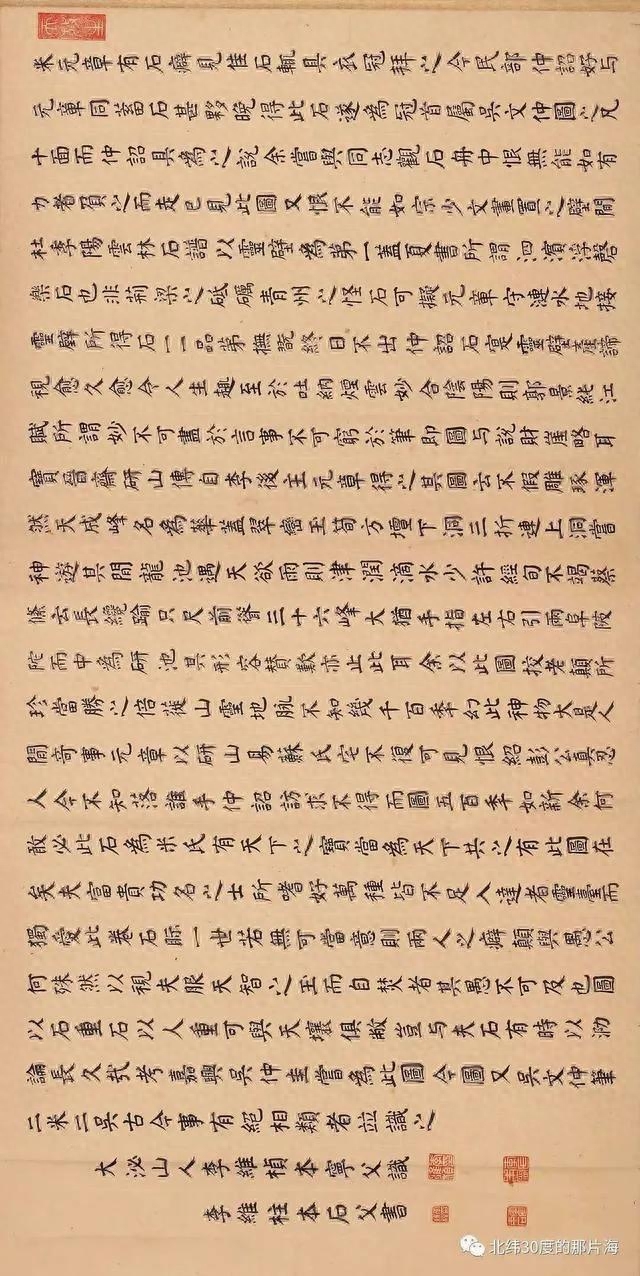 米元章有石癖見佳石輒具衣冠拜之今民部仲詔好与
元章同蓄石甚夥晚得此石遂為冠首屬吳文仲圖之凡
十面而仲詔具為之說余嘗與同志觀石舟中恨無能如有
力者負之而走已見此圖又恨不能如宗少文畫置之壁間
杜季陽雲林石譜以靈壁為第一蓋夏書所謂泗濱浮磬
樂石也非荊梁之砥礪青州之怪石可擬元章守漣水地接
靈壁所得石一一品第撫翫終日不出仲詔石寔靈壁產諦
視愈久愈令人生趣至於吐納煙雲妙合陰陽則郭景純江
賦所謂妙不可盡於言事不可窮於筆即圖与說財崖略耳
寶晉齋研山傳自李後主元章得之其圖云不假雕琢渾
然天成峰名為華蓋翠巒玉筍方壇下洞三折連上洞嘗
神遊其間龍池遇天欲雨則津潤滴水少許經旬不竭蔡
絛云長纔踰只尺前聳三十六峰大猶手指左右引兩阜陂
陀而中為研池其形容贊歎亦止此耳余以此圖挍老顛所
珍當勝之倍蓰山靈地脈不知幾千百年幻此神物大是人
間奇事元章以研山易蘇氏宅不復可見恨紹彭公真忍
人今不知落誰手仲詔訪求不得而圖五百年如新余何
敢必此石為米氏有天下之寶當為天下共之有此圖在
矣夫富貴功名之士所嗜好萬種皆不足入達者靈臺而
獨愛此卷石際一世若無可當意則兩人之癖顛與愚公
何殊然以視夫服天智之玉而自焚者其愚不可及也圖
以石重石以人重可與天壤俱敝豈与夫石有時以泐
論長久哉考嘉興吳仲圭嘗為此圖今圖又吳文仲筆
二米二吳古今事有絕相類者並識之
大泌山人李維楨本寧父識
李維柱本石父書
北纬30度的那片海